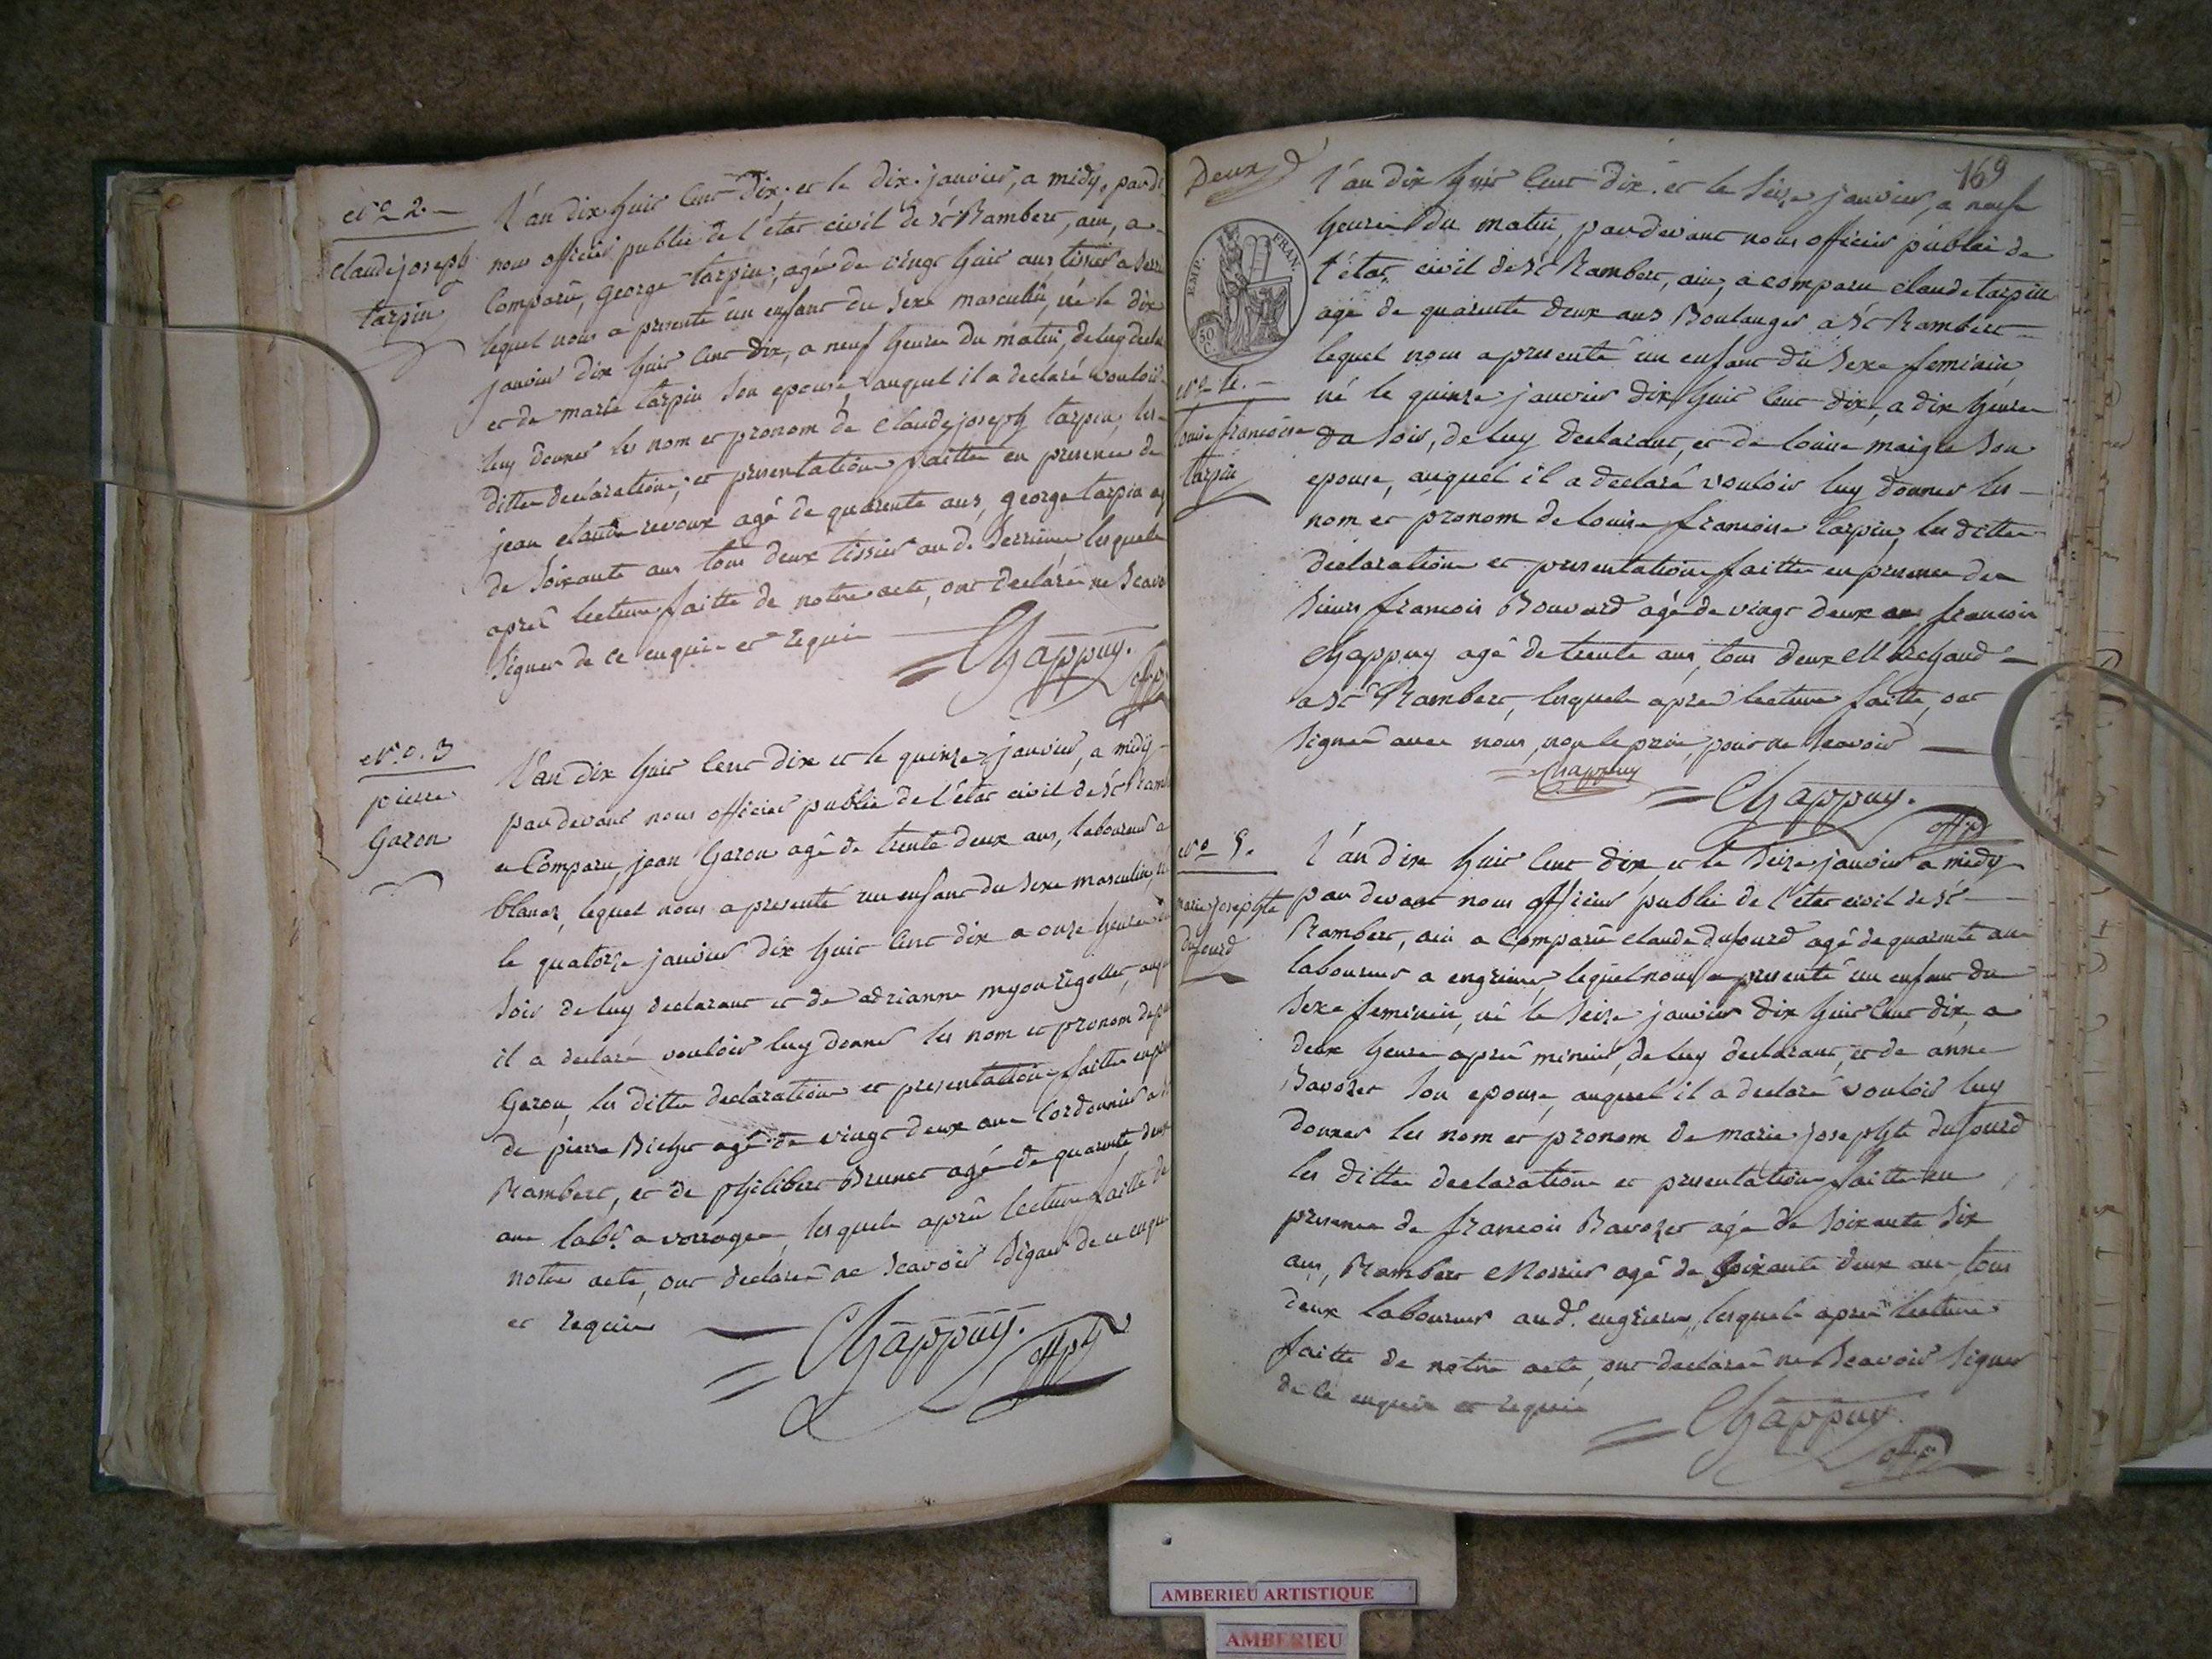 N.o 2.
claude joseph
tarpin
L'an dix huit cent dix, et le dix janvier, a midy, par d
nous officier public de l'état civil de st Rambert, ain, a
Comparu, george tarpin, agé de vingt huit ans, tissier a
lequel nous a presenté un enfant du sexe masculin, né le dix
janvier dix huit cent dix, a neuf heures du matin, de luy decla
et de marie tarpin son epouse, auquel il a declaré vouloir
luy donner les nom et pronom de claude joseph tarpin, les
dittes declaration, et presentation faitte en presence de
jean claude revoux agé de quarente ans, george tarpin ag
de soixante ans tous deux tissier au d. Serrieres lesquels
après lecture faitte de notre acte, ont declarés ne scavo
signer de ce enquis et requis
Chappuy.
off. p.
N.o. 3
pierre
Garon
L'an dix huit cent dix et le quinze janvier, a midy
par devant nous officier public de l'état civil de st Ram
a Comparu, jean Garon agé de trente deux ans, laboureur a
blanaz, lequel nous a presenté un enfant du sexe masculin, né
le quatorze janvier dix huit cent dix a onze heures du
soir de luy declarant et de adrianne myon rigollet, auq
il a declaré vouloir luy donner les nom et pronom de p
Garon, les dittes declaration et presentation faitte en p
de pierre Bichet agé de vingt deux ans Cordonnier a st
Rambert, et de philibert Brunet agé de quarente deux
ans lab.r a vorages, lesquels après lecture faitte de
notre acte, ont declarés ne scavoir signer de ce enqu
et requis
Chappuy.
off. p.
Deux
169
EMP. FRAN.
50 C.
L'an dix huit cent dix. et le seize janvier, a neuf
heures du matin, par devant nous officier public de
l'état civil de st Rambert, ain, a comparu claude tarpin
agé de quarente deux ans Boulanger a St Rambert
lequel nous a presenté un enfant du sexe feminin,
né le quinze janvier dix huit cent dix, a dix heures
du soir, de luy declarant, et de louise maigre son
epouse, auquel il a declaré vouloir luy donner les
nom et pronom de louise francoise tarpin, les dittes
declaration et presentation faitte en presence des
sieurs francois Bouvard agé de vingt deux ans, francois
Chappuy agé de trente ans, tous deux Marchand
a St Rambert, lesquels après lecture faitte, ont
signer avec nous, non le père, pour ne scavoir
N.o 4.
louise francoise
tarpin
Chappuy
Chappuy.
off. p.
N.o 5.
marie josephte
dufourd
L'an dix huit cent dix, et le seize janvier a midy
par devant nous officier public de l'état civil de st
Rambert, ain a Comparu claude dufourd agé de quarente ans
laboureur a engrieres, lequel nous a presenté un enfant du
sexe feminin, né le seize janvier dix huit cent dix, a
deux heures après minuit, de luy declarant, et de anne
Bavozet son epouse, auquel il a declaré vouloir luy
donner les nom et pronom de marie josephte dufourd
les dittes declaration et presentation faitte en
presence de francois Bavozet agé de soixante six
ans, Rambert Mossier agé de soixante deux ans, tous
deux laboureur au d. engrieres, lesquels après lecture
faitte de notre acte, ont declarés ne scavoir signer
de ce enquis et requis
Chappuy
off. p.
AMBERIEU ARTISTIQUE
AMBERIEU